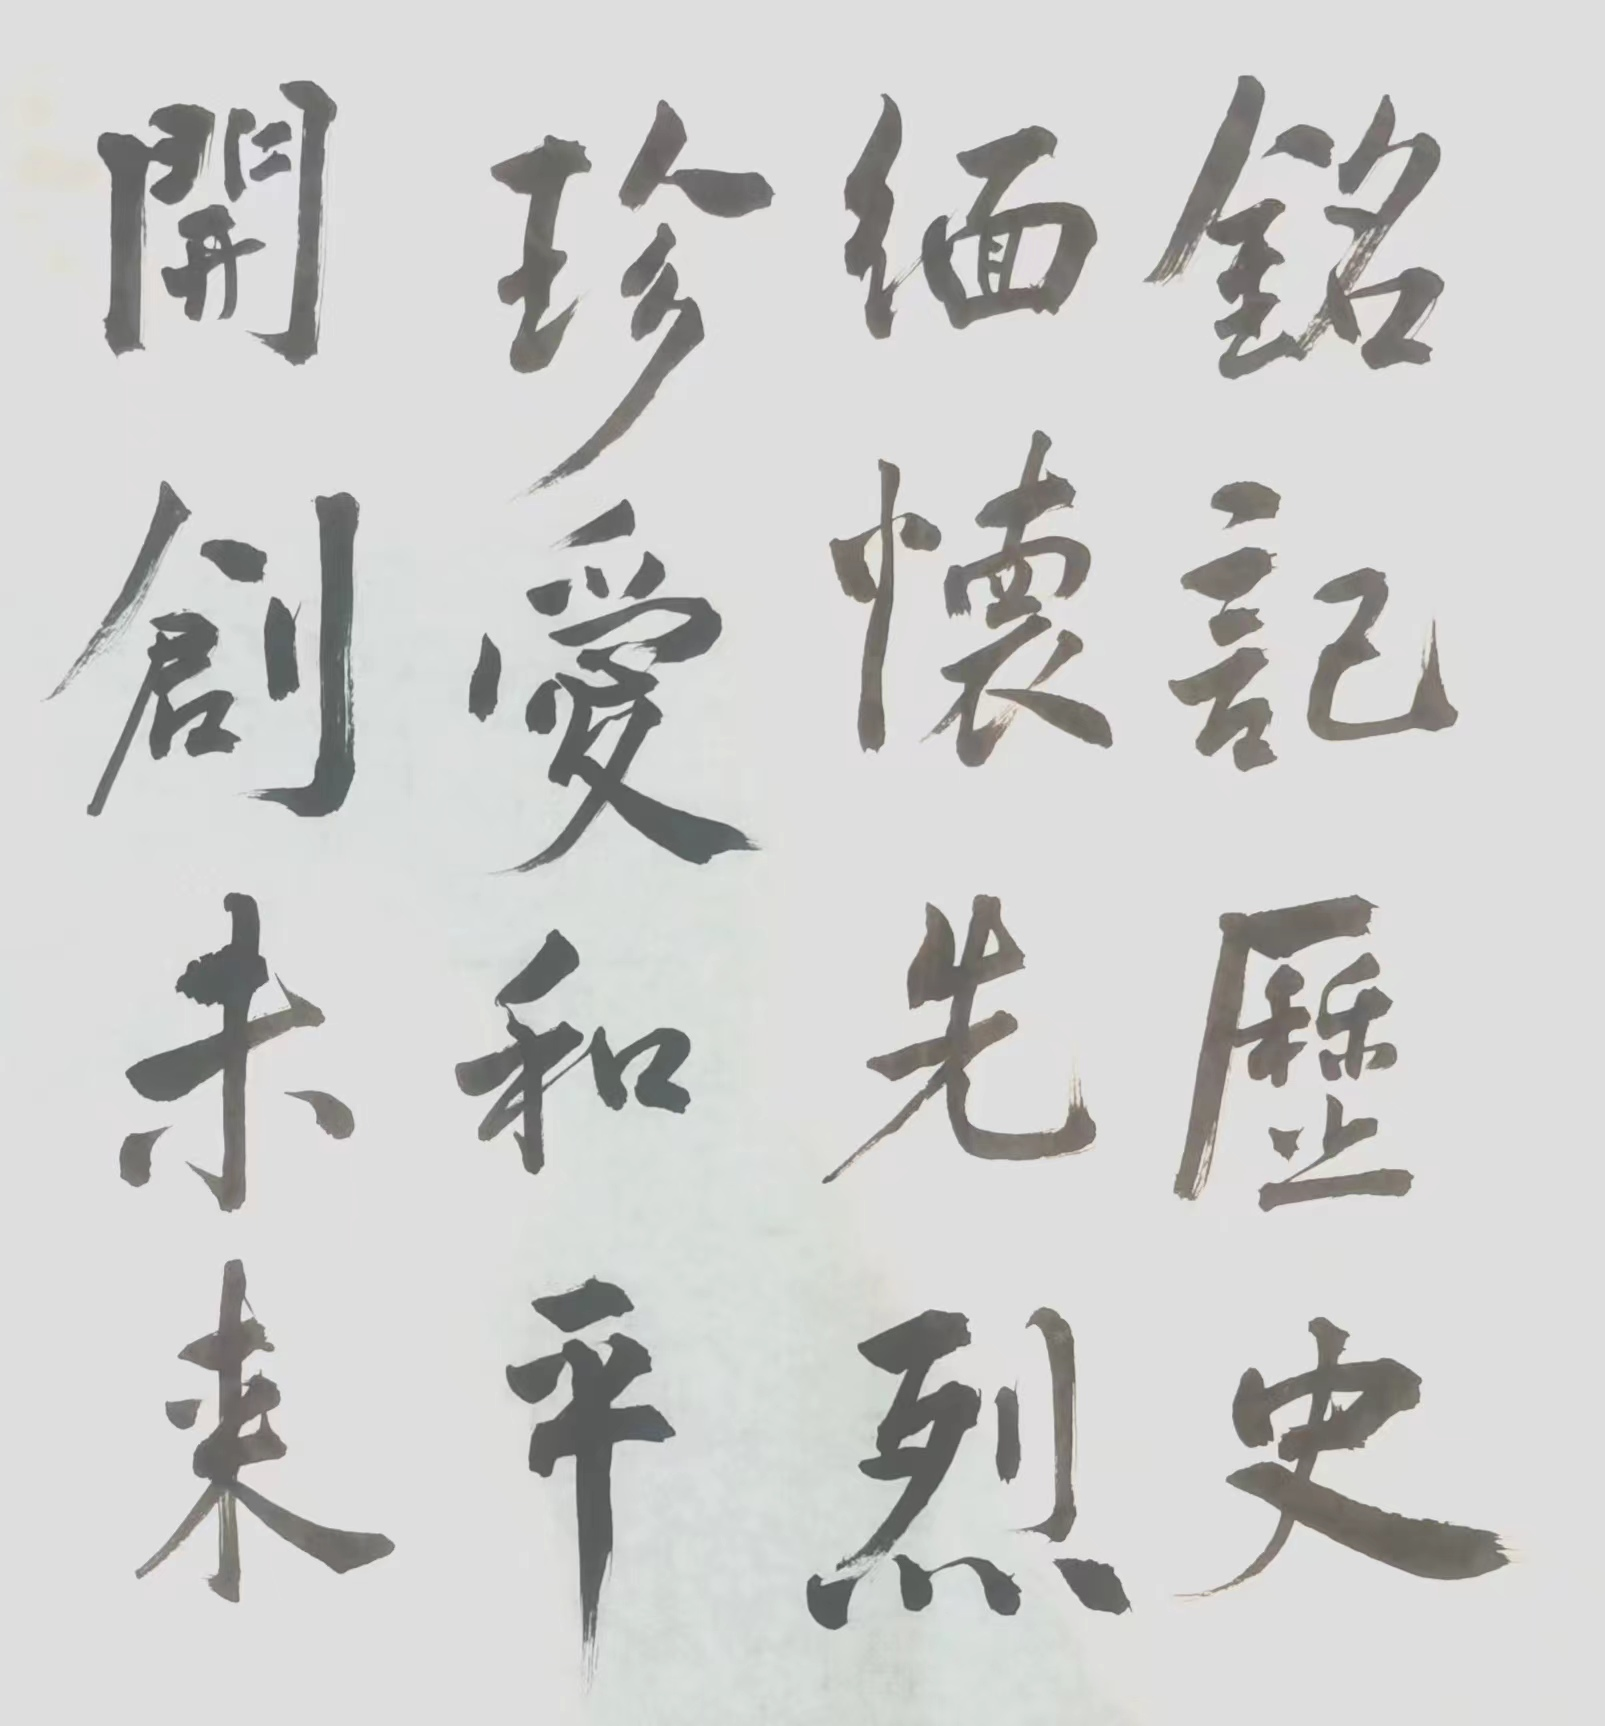 銘記歷史
緬懷先烈
珍愛和平
開創未來